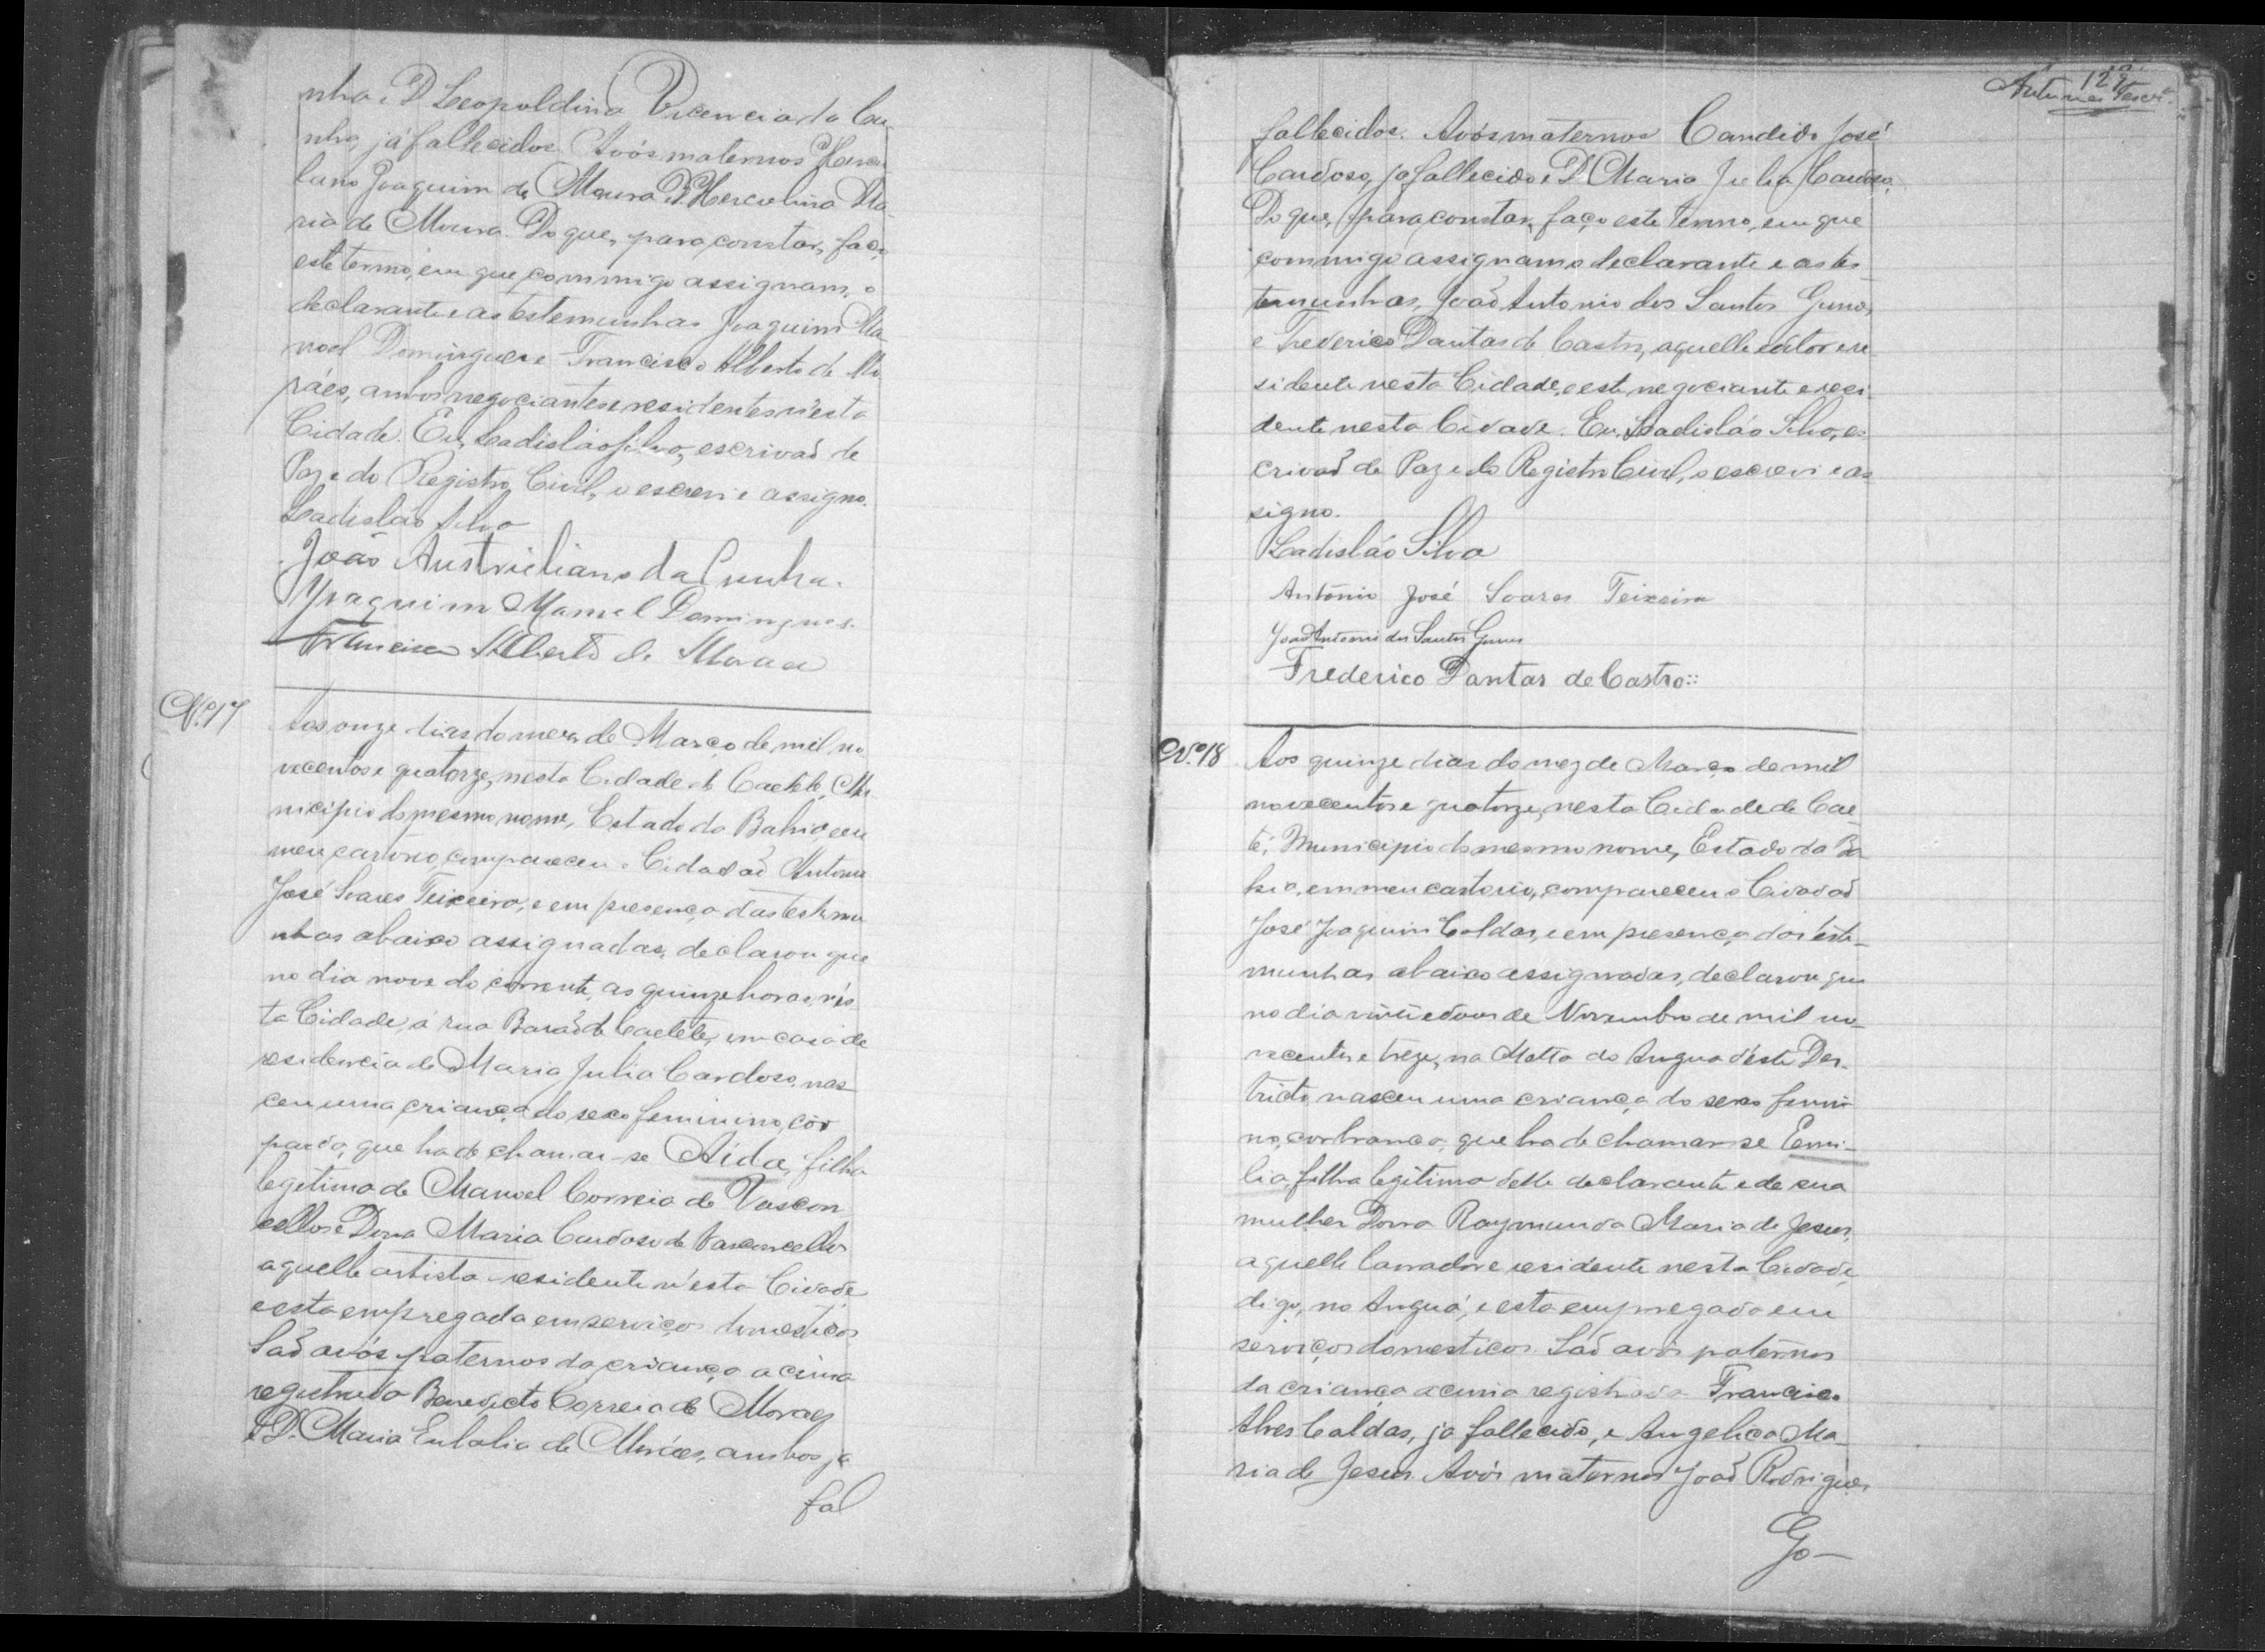 nha e D. Leopoldina Vicencia da Cu-
nha, já fallecidos. Avós maternos Hercu
lano Joaquim de Moura e D. Herculina Ma-
ria de Moura. Do que, para constar, faço
este termo, em que commigo assignam, o
declarante e as testemunhas Joaquim Ma-
noel Domingues e Francisco Alberto de Mo
ráes, ambos negociantes e residentes n'esta
Cidade. Eu, Ladisláo Silva, escrivaõ de
Paz e do Registro Civil, o escrevi e assigno.
Ladisláo Silva
João Austricliano da Cunha.
Joaquim Manoel Domingues.
Francisco Alberto de Moraes
Nº. 17
Aos onze dias do mez de Março de mil no
vecentos e quatorze, nesta Cidade de Caeteté, Mu-
nicipio do mesmo nome, Estado da Bahia, em
meu cartorio, compareceu o Cidadaõ Antonio
José Soares Teixeira, e em presença das testemu
nhas abaixo assignadas, declarou que
no dia nove do corrente, as quinze horas, nes-
ta Cidade, á rua Barão de Caeteté, em casa de
residencia de Maria Julia Cardoso, nas
ceu uma criança do sexo feminino, côr
parda, que ha de chamar-se Aida, filha
legitima de Manoel Correia de Vascon
cellos e Dona Maria Cardoso de Vasconcellos
aquelle artista residente n'esta Cidade
e esta empregada em serviços domesticos
Saõ avós paternos da criança acima
registrada Benedicto Correia de Moraes
e D. Maria Eulalia de Moráes, ambos já
fal
129
Antunes
fallecidos. Avós maternos Candido José
Cardoso, já fallecido e D. Maria Julia Cardoso.
Do que, para constar, faço este termo, em que
commigo assignam o declarante e as tes-
temunhas, João Antonio dos Santos Gumes
e Frederico Dantas de Castro, aquelle editor e re
sidente nesta Cidade, e este negociante e resi
dente nesta Cidade. Eu, Ladisláo Silva, es
crivaõ de Paz e do Registro Civil, o escrevi e as
signo.
Ladisláo Silva
Antonio José Soares Teixeira
João Antonio dos Santos Gumes
Frederico Dantas de Castro::
Nº. 18
Aos quinze dias do mez de Março de mil
novecentos e quatorze, nesta Cidade de Cae
té, Municipio do mesmo nome, Estado da Ba
hia, em meu cartorio, compareceu o Cidadaõ
José Joaquim Caldas, e em presença das teste-
munhas abaixo assignadas, declarou que
no dia vinte e dous de Novembro de mil no-
vecentos e treze, na Matta do Anguá d'este Des-
tricto, nasceu uma criança do sexo femini
no, cor branca, que ha de chamar-se Emi-
lia, filha legitima delle declarante e de sua
mulher Dona Raymunda Maria de Jesus,
aquelle lavrador e residente nesta Cidade,
digo, no Anguá, e esta empregada em
serviços domesticos. Saõ avós paternos
da criança acima registrada Francisco
Alves Caldas, já fallecido, e Angelica Ma-
ria de Jesus. Avós maternos João Rodrigues
Go-